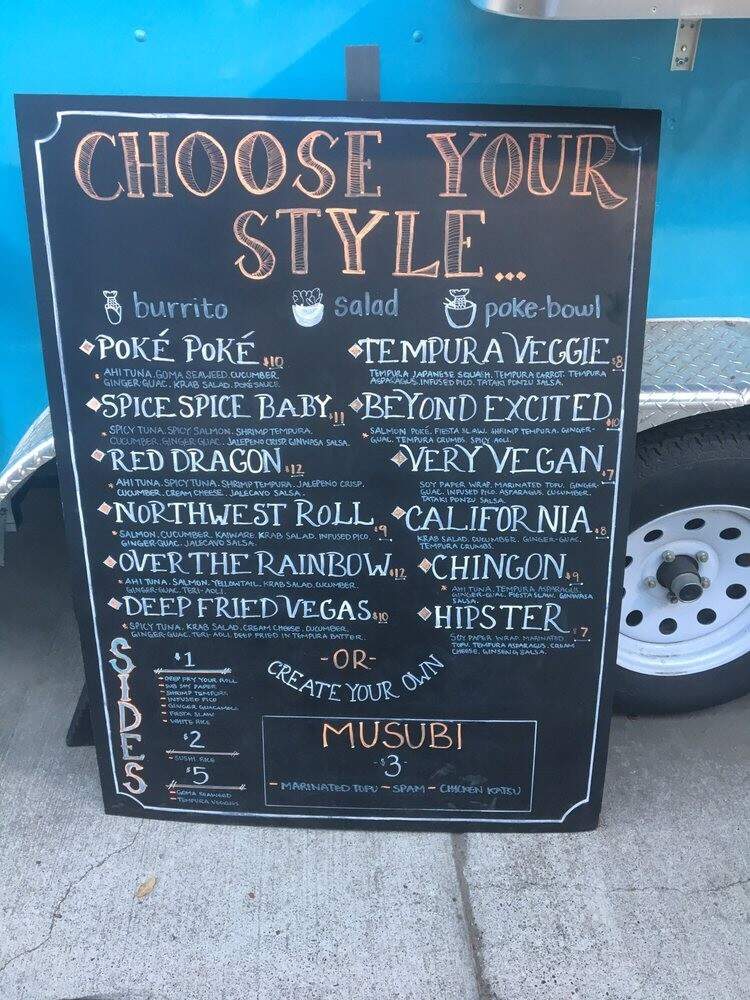 CHOOSE YOUR
STYLE...
burrito salad poke-bowl
POKÉ POKÉ $10
AHI TUNA. GOMA SEAWEED. CUCUMBER.
GINGER-GUAC. KRAB SALAD. POKÉ SAUCE
SPICE SPICE BABY $11
SPICY TUNA. SPICY SALMON. SHRIMP TEMPURA.
CUCUMBER. GINGER GUAC. JALEPENO CRISP. GINWASA SALSA.
RED DRAGON $12
AHI TUNA. SPICY TUNA. SHRIMP TEMPURA. JALEPENO CRISP.
CUCUMBER. CREAM CHEESE. JALECAVO SALSA.
NORTHWEST ROLL $9
SALMON. CUCUMBER. KAIWARE. KRAB SALAD. INFUSED PICO.
GINGER-GUAC. JALECAVO SALSA.
OVER THE RAINBOW $12
AHI TUNA. SALMON. YELLOWTAIL. KRAB SALAD. CUCUMBER.
GINGER-GUAC. TERI-AOLI.
DEEP FRIED VEGAS $10
SPICY TUNA. KRAB SALAD. CREAM CHEESE. CUCUMBER.
GINGER-GUAC. TERI-AOLI. DEEP FRIED IN TEMPURA BATTER.
TEMPURA VEGGIE $8
TEMPURA JAPANESE SQUASH. TEMPURA CARROT. TEMPURA
ASPARAGUS. INFUSED PICO. TATAKI PONZU SALSA.
BEYOND EXCITED $10
SALMON POKÉ. FIESTA SLAW. SHRIMP TEMPURA. GINGER-
GUAC. TEMPURA CRUMBS. SPICY AOLI.
VERY VEGAN $7
SOY PAPER WRAP. MARINATED TOFU. GINGER-
GUAC. INFUSED PICO. ASPARAGUS. CUCUMBER.
TATAKI PONZU SALSA.
CALIFORNIA $8
KRAB SALAD. CUCUMBER. GINGER-GUAC.
TEMPURA CRUMBS.
CHINGON $9
AHI TUNA. TEMPURA ASPARAGUS.
GINGER-GUAC. FIESTA SLAW. GINWASA
SALSA.
HIPSTER $7
SOY PAPER WRAP. MARINATED
TOFU. TEMPURA ASPARAGUS. CREAM
CHEESE. GINSENG SALSA.
-OR-
CREATE YOUR OWN
SIDES
$1
- DEEP FRY YOUR ROLL
- SUB SOY PAPER
- SHRIMP TEMPURA
- INFUSED PICO
- GINGER GUACAMOLE
- FIESTA SLAW
- WHITE RICE
$2
- SUSHI RICE
$5
- GOMA SEAWEED
- TEMPURA VEGGIES
MUSUBI
-$3-
- MARINATED TOFU - SPAM - CHICKEN KATSU